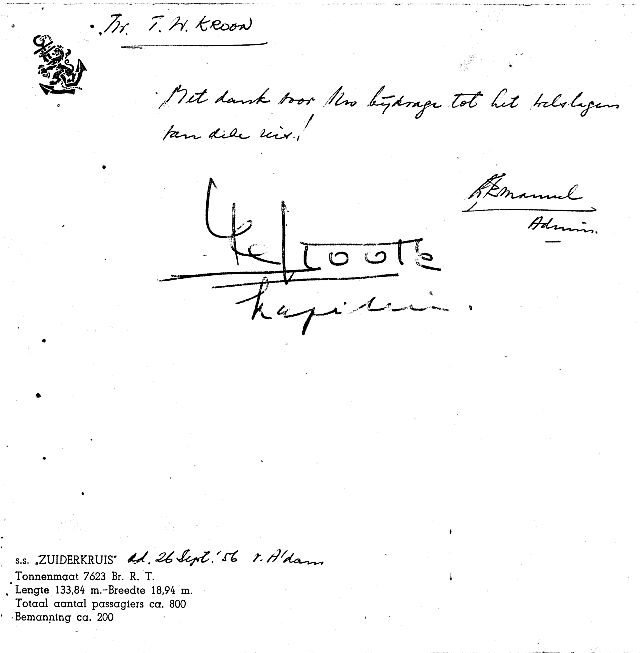 T. W. KROON
Met dank voor Uw bijdrage tot het welslagen
van deze reis!
Emanuel
Admin.
de Groote
kapitein.
s.s. „ZUIDERKRUIS" a.d. 26 Sept. '56 v. A'dam
Tonnenmaat 7623 Br. R. T.
Lengte 133,84 m.-Breedte 18,94 m.
Totaal aantal passagiers ca. 800
Bemanning ca. 200